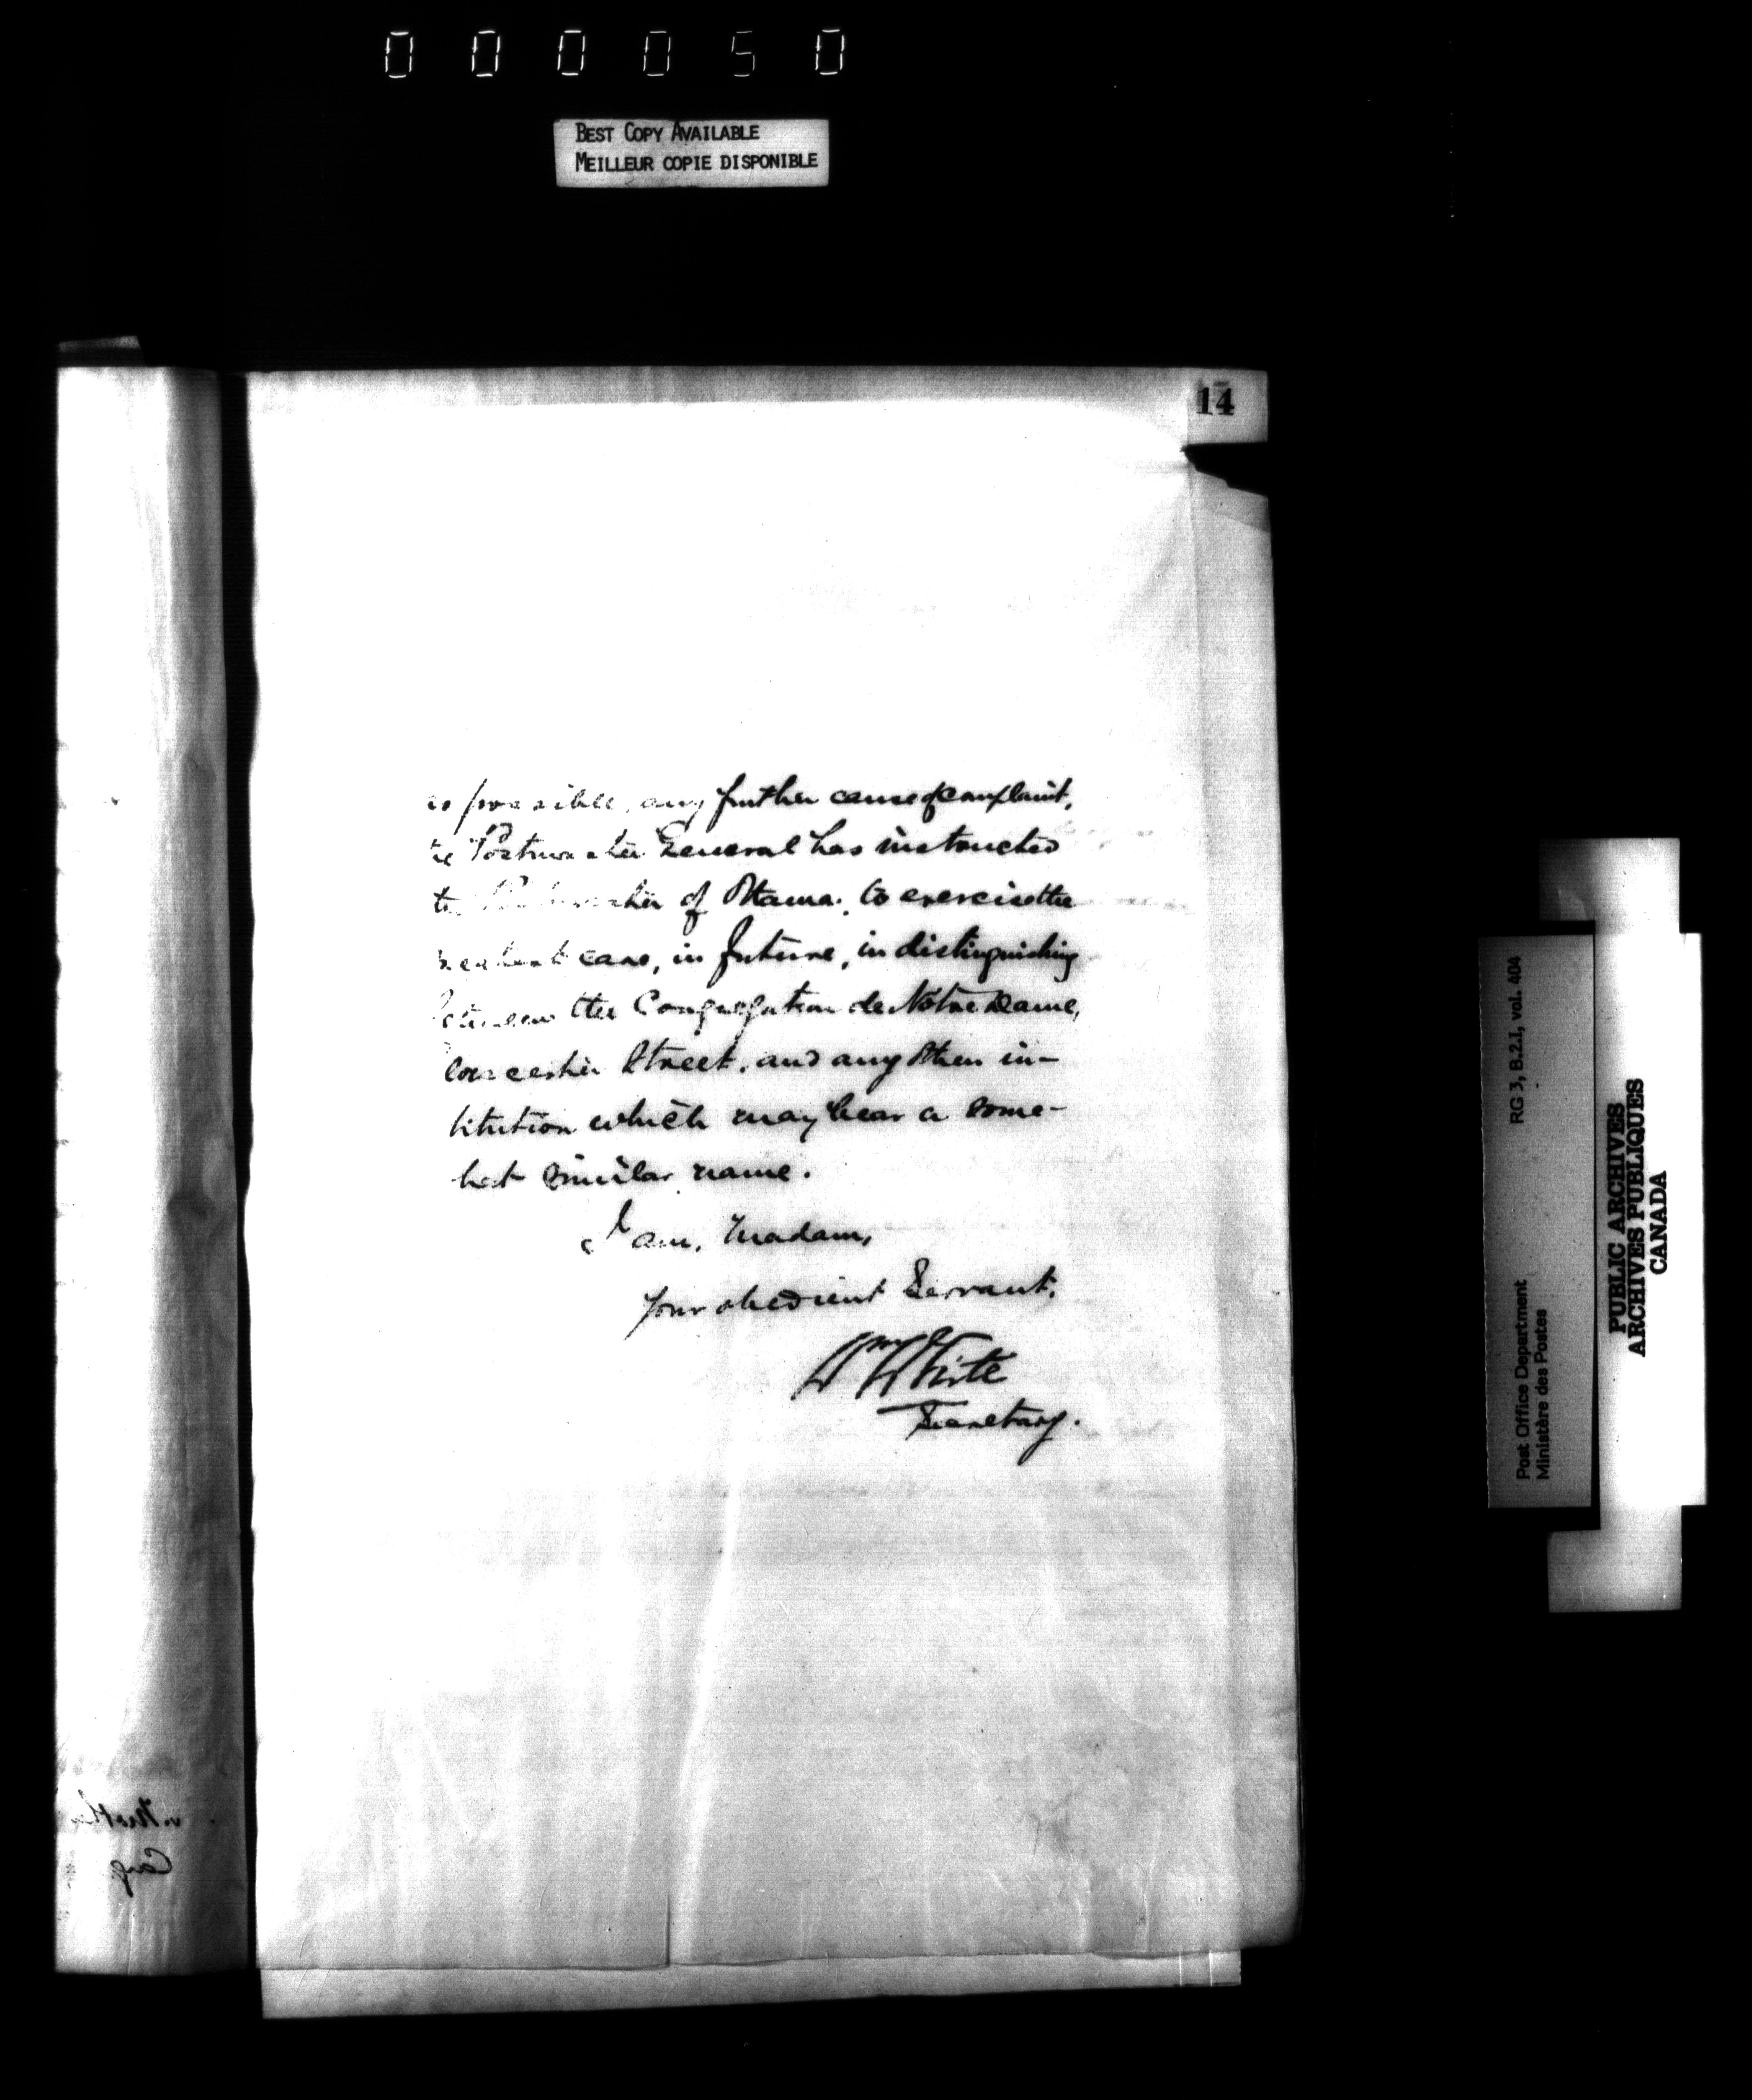 000050
BEST COPY AVAILABLE
MEILLEUR COPIE DISPONIBLE
14
as possible, any further cause of complaint,
he Postmaster General has instructed
the Postmaster of Ottawa, to exercise the
greatest care, in future, in distinguishing
between the Congregation de Notre Dame,
loucester Street, and any other in-
titution which may bear a some-
hat similar name.
I am, Madam,
Your obedient Servant,
Wm White
Secretary.
Post Office Department RG 3, B.2.I, vol. 404
Ministère des Postes
PUBLIC ARCHIVES
ARCHIVES PUBLIQUES
CANADA